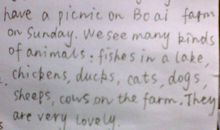 have a picnic on Boai farm
on Sunday. We see many kinds
of animals: fishes in a lake,
chickens, ducks, cats, dogs,
sheeps, cows on the farm. They
are very lovely.